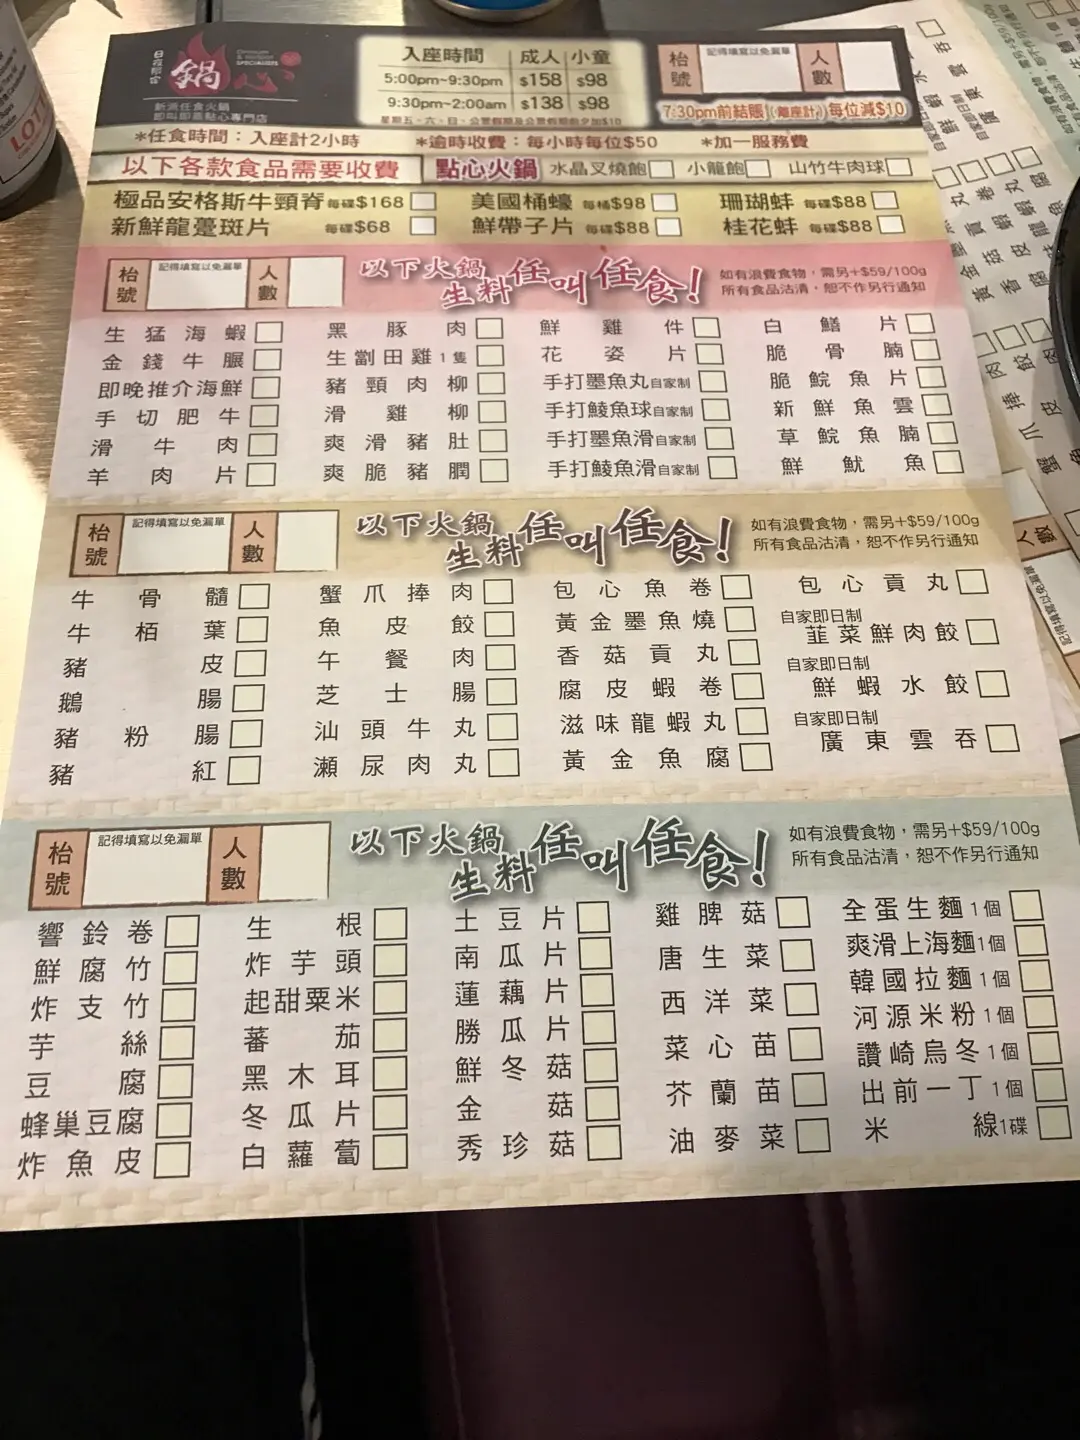 日夜都會
鍋心
DIMSUM & HOTPOT SPECIALISTS
新派任食火鍋
即叫即蒸點心專門店
入座時間 成人 小童
5:00pm~9:30pm $158 $98
9:30pm~2:00am $138 $98
星期五、六、日、公眾假期及公眾假期前夕加$10
枱號 記得填寫以免漏單 人數
7:30pm前結賬(離座計)每位減$10
*任食時間：入座計2小時 *逾時收費：每小時每位$50 *加一服務費
以下各款食品需要收費 點心火鍋 水晶叉燒飽 小籠飽 山竹牛肉球
極品安格斯牛頸脊 每碟$168 美國桶蠔 每桶$98 珊瑚蚌 每碟$88
新鮮龍躉斑片 每碟$68 鮮帶子片 每碟$88 桂花蚌 每碟$88
枱號 記得填寫以免漏單 人數
以下火鍋生料任叫任食！
如有浪費食物，需另+$59/100g
所有食品沽清，恕不作另行通知
生猛海蝦 黑豚肉 鮮雞件 白鱔片
金錢牛𦟌 生劏田雞1隻 花姿片 脆骨腩
即晚推介海鮮 豬頸肉柳 手打墨魚丸自家制 脆鯇魚片
手切肥牛 滑雞柳 手打鯪魚球自家制 新鮮魚雲
滑牛肉 爽滑豬肚 手打墨魚滑自家制 草鯇魚腩
羊肉片 爽脆豬膶 手打鯪魚滑自家制 鮮魷魚
枱號 記得填寫以免漏單 人數
以下火鍋生料任叫任食！
如有浪費食物，需另+$59/100g
所有食品沽清，恕不作另行通知
牛骨髓 蟹爪捧肉 包心魚卷 包心貢丸
牛栢葉 魚皮餃 黃金墨魚燒 自家即日制 韮菜鮮肉餃
豬皮 午餐肉 香菇貢丸 自家即日制 鮮蝦水餃
鵝腸 芝士腸 腐皮蝦卷 自家即日制 廣東雲吞
豬粉腸 汕頭牛丸 滋味龍蝦丸
豬紅 瀨尿肉丸 黃金魚腐
枱號 記得填寫以免漏單 人數
以下火鍋生料任叫任食！
如有浪費食物，需另+$59/100g
所有食品沽清，恕不作另行通知
響鈴卷 生根 土豆片 雞脾菇 全蛋生麵1個
鮮腐竹 炸芋頭 南瓜片 唐生菜 爽滑上海麵1個
炸支竹 起甜粟米 蓮藕片 西洋菜 韓國拉麵1個
芋絲 蕃茄 勝瓜片 菜心苗 河源米粉1個
豆腐 黑木耳 鮮冬菇 芥蘭苗 讚崎烏冬1個
蜂巢豆腐 冬瓜片 金菇 油麥菜 出前一丁1個
炸魚皮 白蘿蔔 秀珍菇 米線1碟